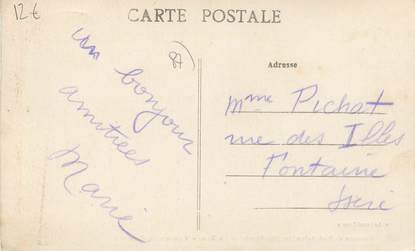 12€
CARTE POSTALE
87
un bonjour
amitiées
Marie
Adresse
Mme Pichat
rue des Illes
Fontaine
Isère